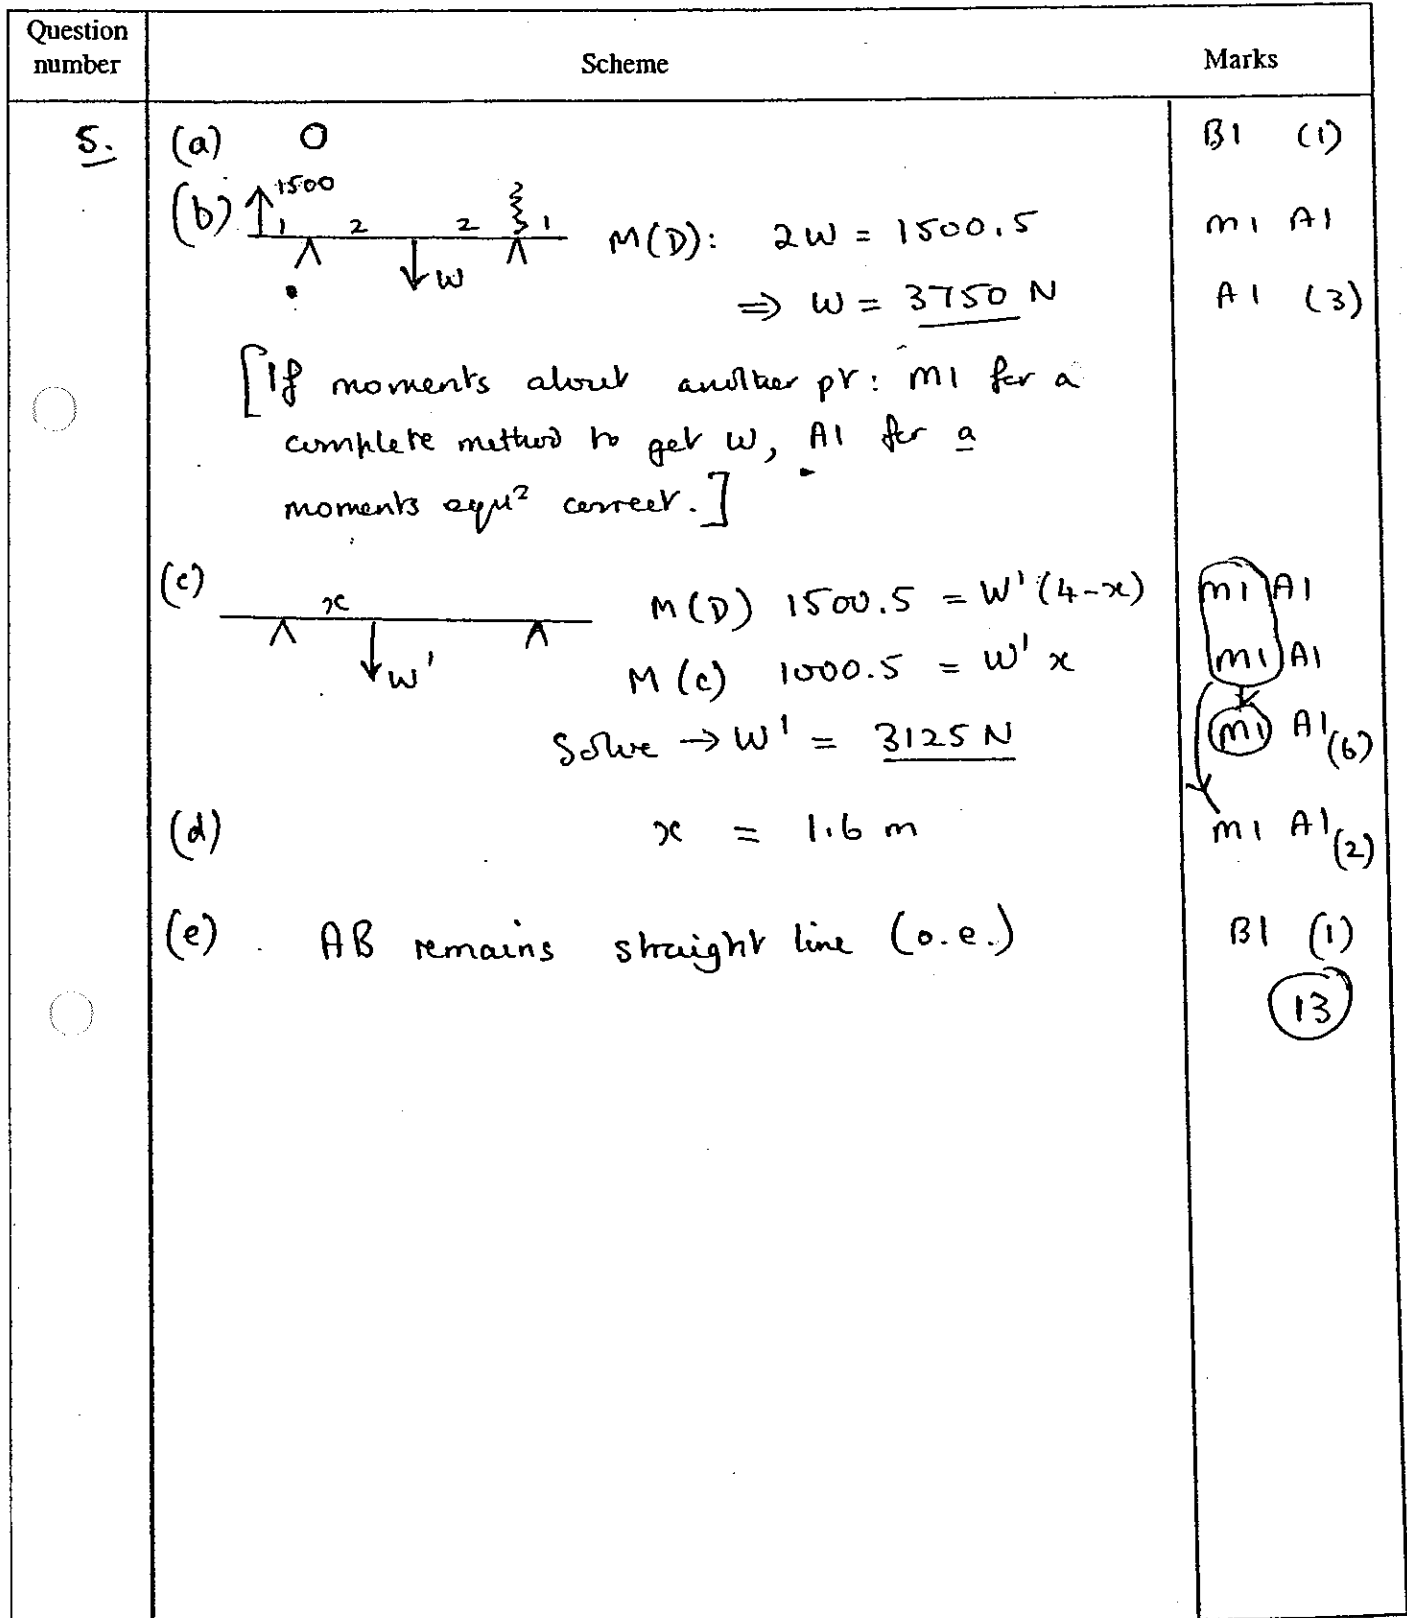 Question number Scheme Marks
5. (a) 0 B1 (1)
(b) 1500 1 2 2 1 W M(D): 2W = 1500.5 M1 A1
⇒ W = 3750 N A1 (3)
[If moments about another pt: M1 for a
complete method to get W, A1 for a
moments equⁿ correct.]
(c) x W' M(D) 1500.5 = W'(4-x) M1 A1
M(c) 1000.5 = W'x M1 A1
Solve → W' = 3125 N M1 A1 (6)
(d) x = 1.6 m M1 A1 (2)
(e) AB remains straight line (o.e.) B1 (1)
13